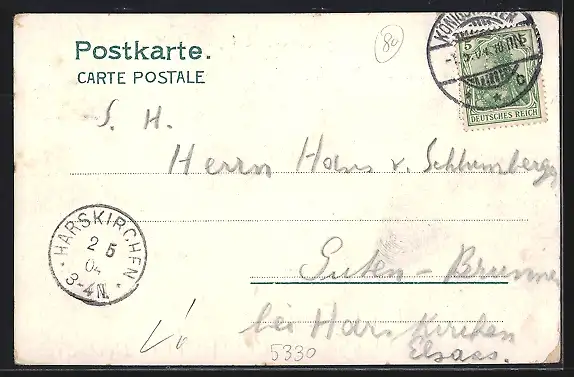 Postkarte.
CARTE POSTALE
80
5 5
DEUTSCHES REICH
S. H.
Herrn Hans v. Schlumberger
HARSKIRCHEN
2 5
04
3-4N.
Guten-Brunnen
bei Harskirchen
Elsass.
5330